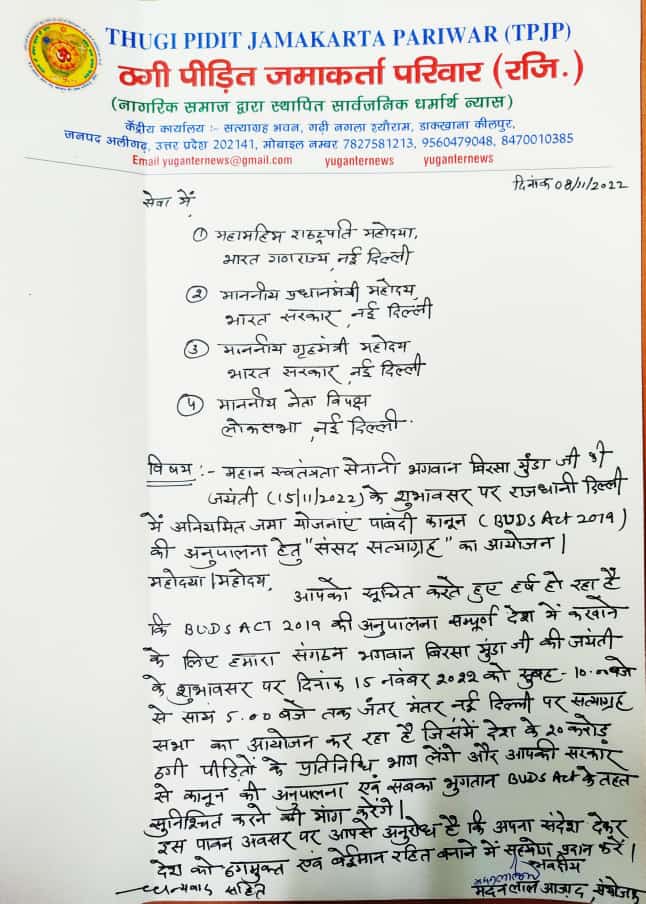 THUGI PIDIT JAMAKARTA PARIWAR (TPJP)
ठगी पीड़ित जमाकर्ता परिवार (रजि.)
(नागरिक समाज द्वारा स्थापित सार्वजनिक धर्मार्थ न्यास)
केंद्रीय कार्यालय :- सत्याग्रह भवन, गढ़ी नगला श्यौराम, डाकखाना कीलपुर,
जनपद अलीगढ़, उत्तर प्रदेश 202141, मोबाइल नम्बर 7827581213, 9560479048, 8470010385
Email yuganternews@gmail.com yuganternews yuganternews
दिनांक 08/11/2022
सेवा में,
① महामहिम राष्ट्रपति महोदया,
भारत गणराज्य, नई दिल्ली
② माननीय प्रधानमंत्री महोदय,
भारत सरकार, नई दिल्ली
③ माननीय गृहमंत्री महोदय
भारत सरकार, नई दिल्ली
④ माननीय नेता विपक्ष
लोकसभा, नई दिल्ली.
विषय :- महान स्वतंत्रता सेनानी भगवान बिरसा मुंडा जी की
जयंती (15/11/2022) के शुभावसर पर राजधानी दिल्ली
में अनियमित जमा योजनाएं पाबंदी कानून (BUDS Act 2019)
की अनुपालना हेतु "संसद सत्याग्रह" का आयोजन |
महोदया/महोदय,
आपको सूचित करते हुए हर्ष हो रहा है
कि BUDS ACT 2019 की अनुपालना सम्पूर्ण देश में करवाने
के लिए हमारा संगठन भगवान बिरसा मुंडा जी की जयंती
के शुभावसर पर दिनांक 15 नवंबर 2022 को सुबह - 10.00 बजे
से सायं 5.00 बजे तक जंतर मंतर नई दिल्ली पर सत्याग्रह
सभा का आयोजन कर रहा है जिसमें देश के 20 करोड़
ठगी पीड़ितों के प्रतिनिधि भाग लेंगे और आपकी सरकार
से कानून की अनुपालना एवं सबका भुगतान BUDS Act के तहत
सुनिश्चित करने की मांग करेंगे |
इस पावन अवसर पर आपसे अनुरोध है कि अपना संदेश देकर
देश को ठगमुक्त एवं बेईमान रहित बनाने में सहयोग प्रदान करें |
भवदीय
धन्यवाद सहित
मदनलाल आज़ाद, संयोजक